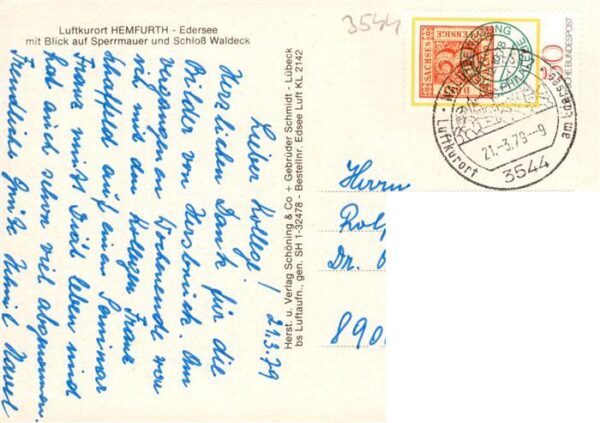 Luftkurort HEMFURTH - Edersee
mit Blick auf Sperrmauer und Schloß Waldeck
3544
21.3.79
Lieber Kollege!
Herzlichen Dank für die
Bilder von Hersbruck. Am
vergangenen Wochenende war
ich mit dem Kollegen Franz
Schaffeld auf einem Seminar
Franz mußt Diät leben und
hat auch schon viel abgenommen.
Freundliche Grüße
Herst. u. Verlag Schöning & Co + Gebrüder Schmidt - Lübeck
bs Luftaufn., gen. SH 1-32478 - Bestellnr. Edsee Luft KL 2142
SACHSEN
PFENNIGE
DEUTSCHE BUNDESPOST
Luftkurort
am Edersee
21.-3.79-9
3544
Herrn
Dr.
890